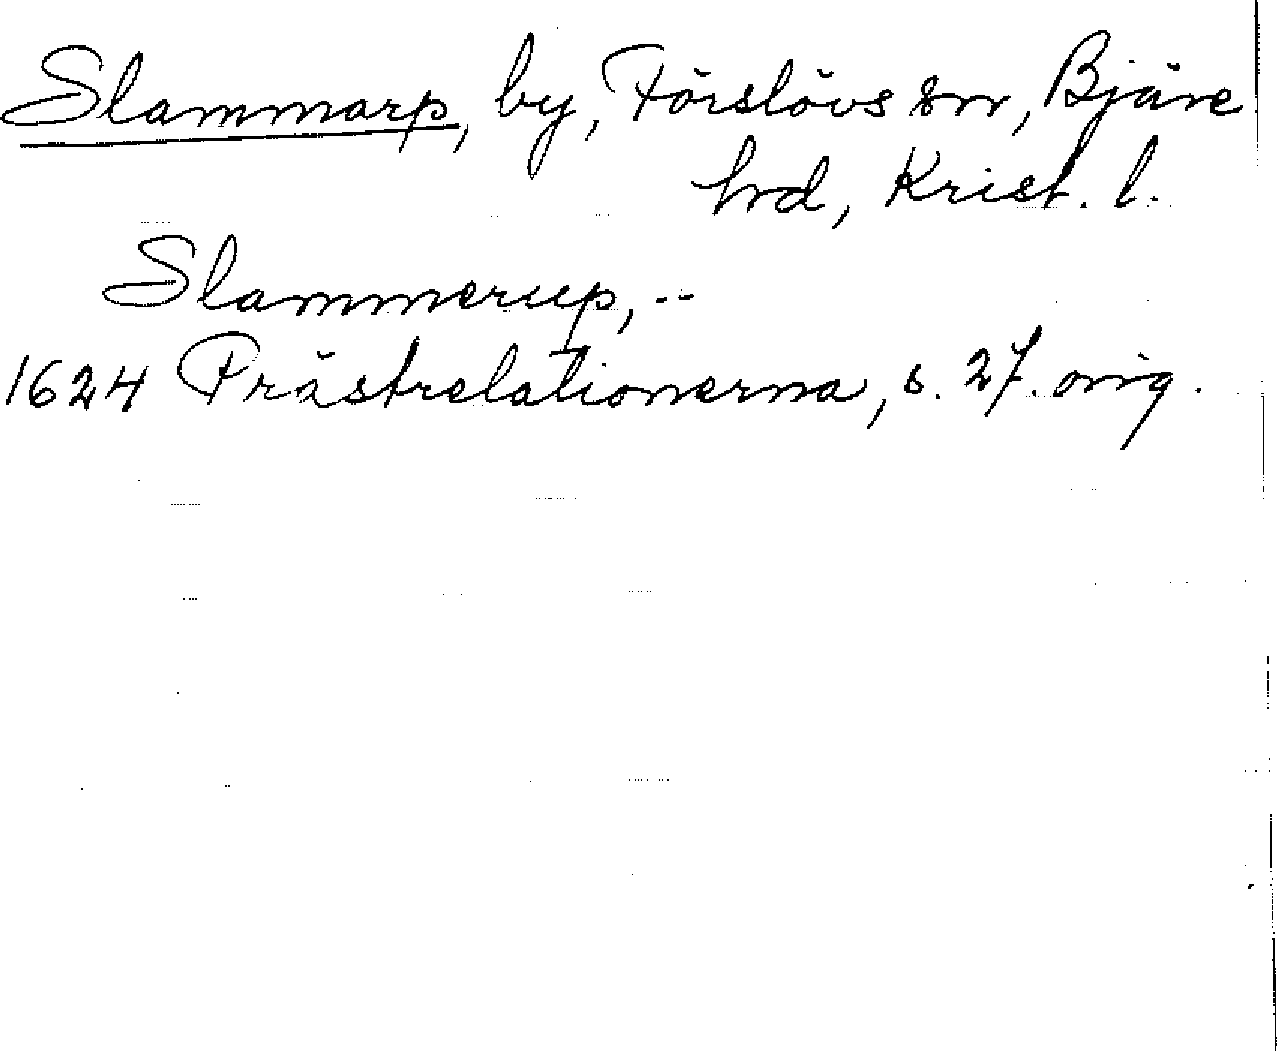 Slammarp, by, Förslövs sn, Bjäre
hd, Krist. l.
Slammerup, --
1624 Prästrelationerna, s. 27. orig.